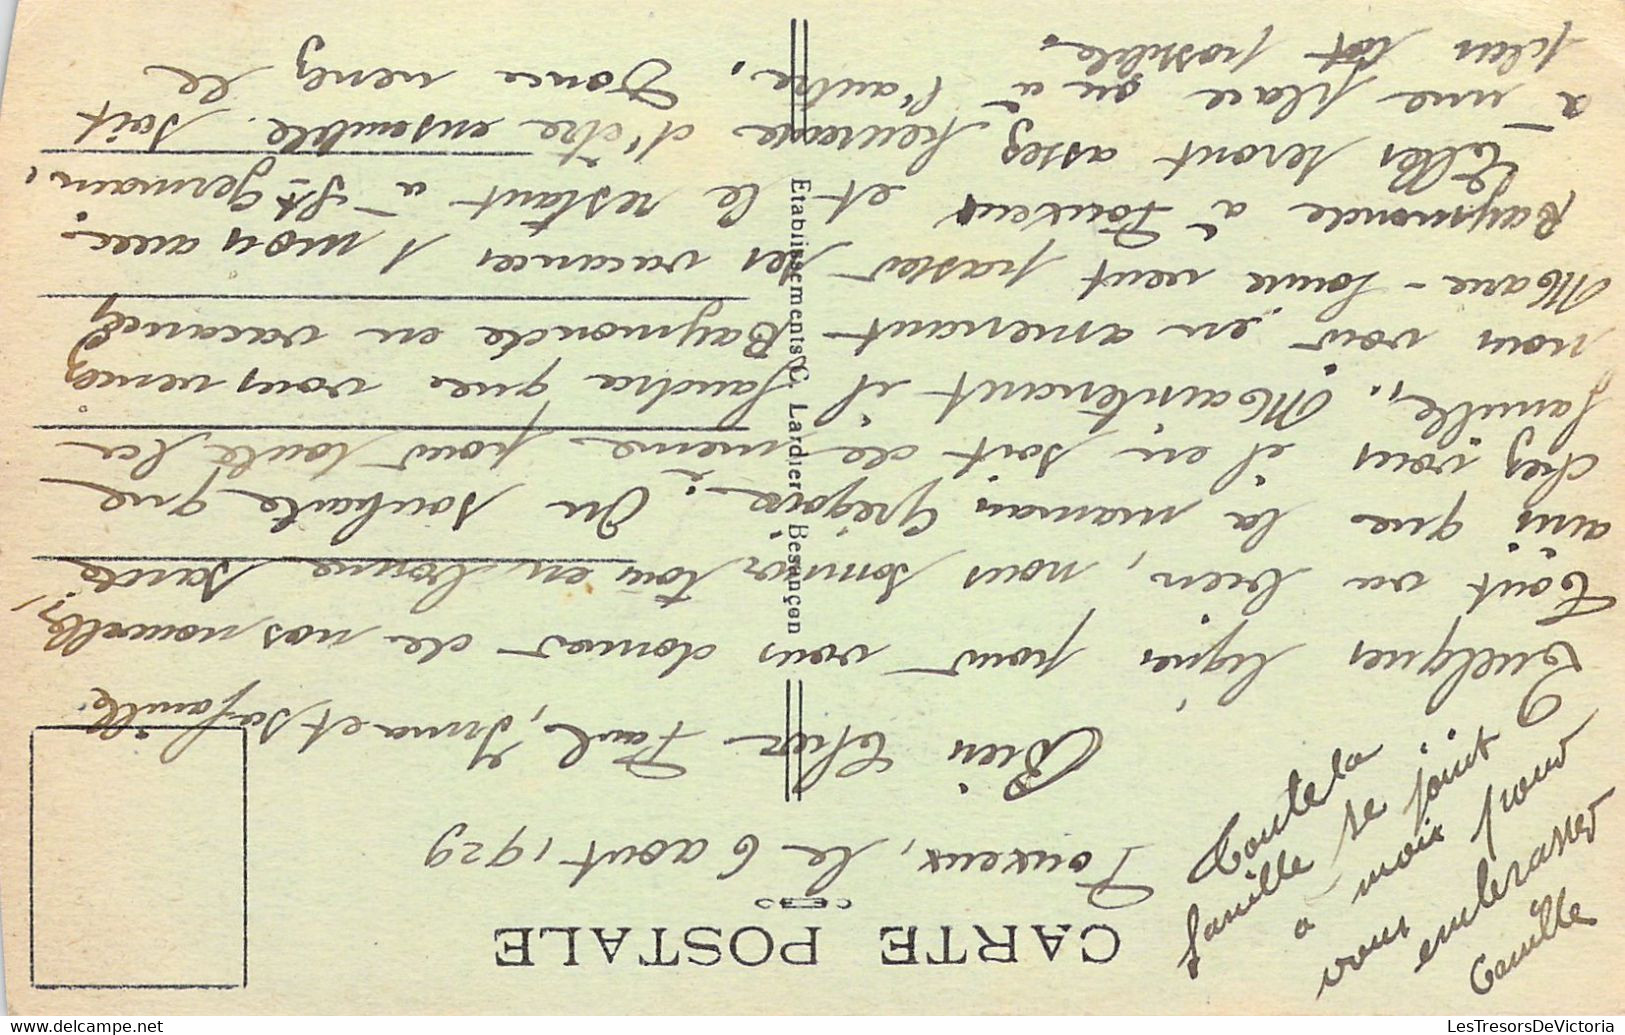 CARTE POSTALE
Pouxeux, le 6 aout 1929
Bien Cher Paul, Irma et sa famille
Quelques lignes pour vous donner de nos nouvelles,
tout va bien, nous sommes tous en bonne santé
ainsi que la maman Grégoire. On souhaite que
chez vous il en soit de même pour toute la
famille. Maintenant il faudra que vous veniez
nous voir en amenant Raymonde en vacances
Marie-Louise veut passer ses vacances 1 mois avec
Raymonde à Pouxeux et le restant à St Germain.
Elles seront assez heureuse d'être ensemble. soit
à une place ou à l'autre. Donc venez le
plus tôt possible.
Toute la
famille se joint
a moi pour
vous embrasser
Camille
Etablissements C. Lardier Besançon
LesTresorsDeVictoria
delcampe.net